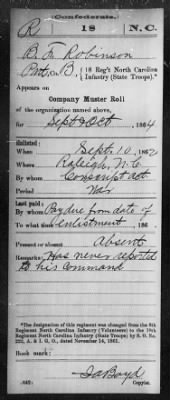 Confederate.
R 18 N.C.
B. F. Robinson
Pvt. Co. B, 18 Reg't North Carolina
Infantry (State Troops).*
Appears on
Company Muster Roll
of the organization named above,
for Sept & Oct, 1864
Enlisted:
When Sept. 10, 1862
Where Raleigh, N.C.
By whom Conscript act
Period War
Last paid:
By whom Pay due from date of
To what time enlistment, 186
Present or absent Absent
Remarks: Has never reported
to his command
*The designation of this regiment was changed from the 8th
Regiment North Carolina Infantry (Volunteers) to the 18th
Regiment North Carolina Infantry (State Troops) by S. O. No.
222, A. & I. G. O., dated November 14, 1861.
Book mark:
Boyd
(642) Copyist.